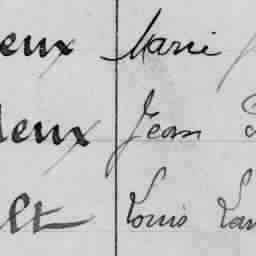 eux Marie
deux Jean
lt Louis